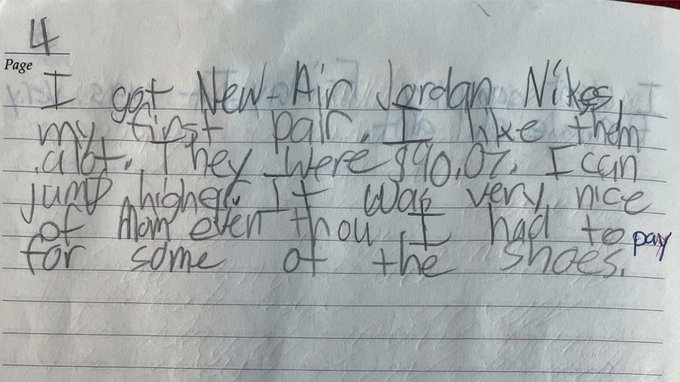 4
Page
I got New Air Jordan Nikes,
my first pair. I like them
alot. They were $90.07. I can
jump higher. It was very nice
of Mom even thou I had to pay
for some of the shoes.